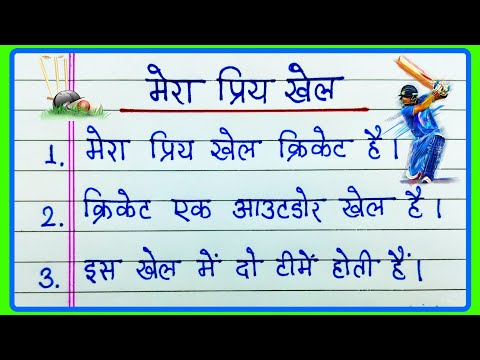 मेरा प्रिय खेल
1. मेरा प्रिय खेल क्रिकेट है।
2. क्रिकेट एक आउटडोर खेल है।
3. इस खेल में दो टीमें होती हैं।